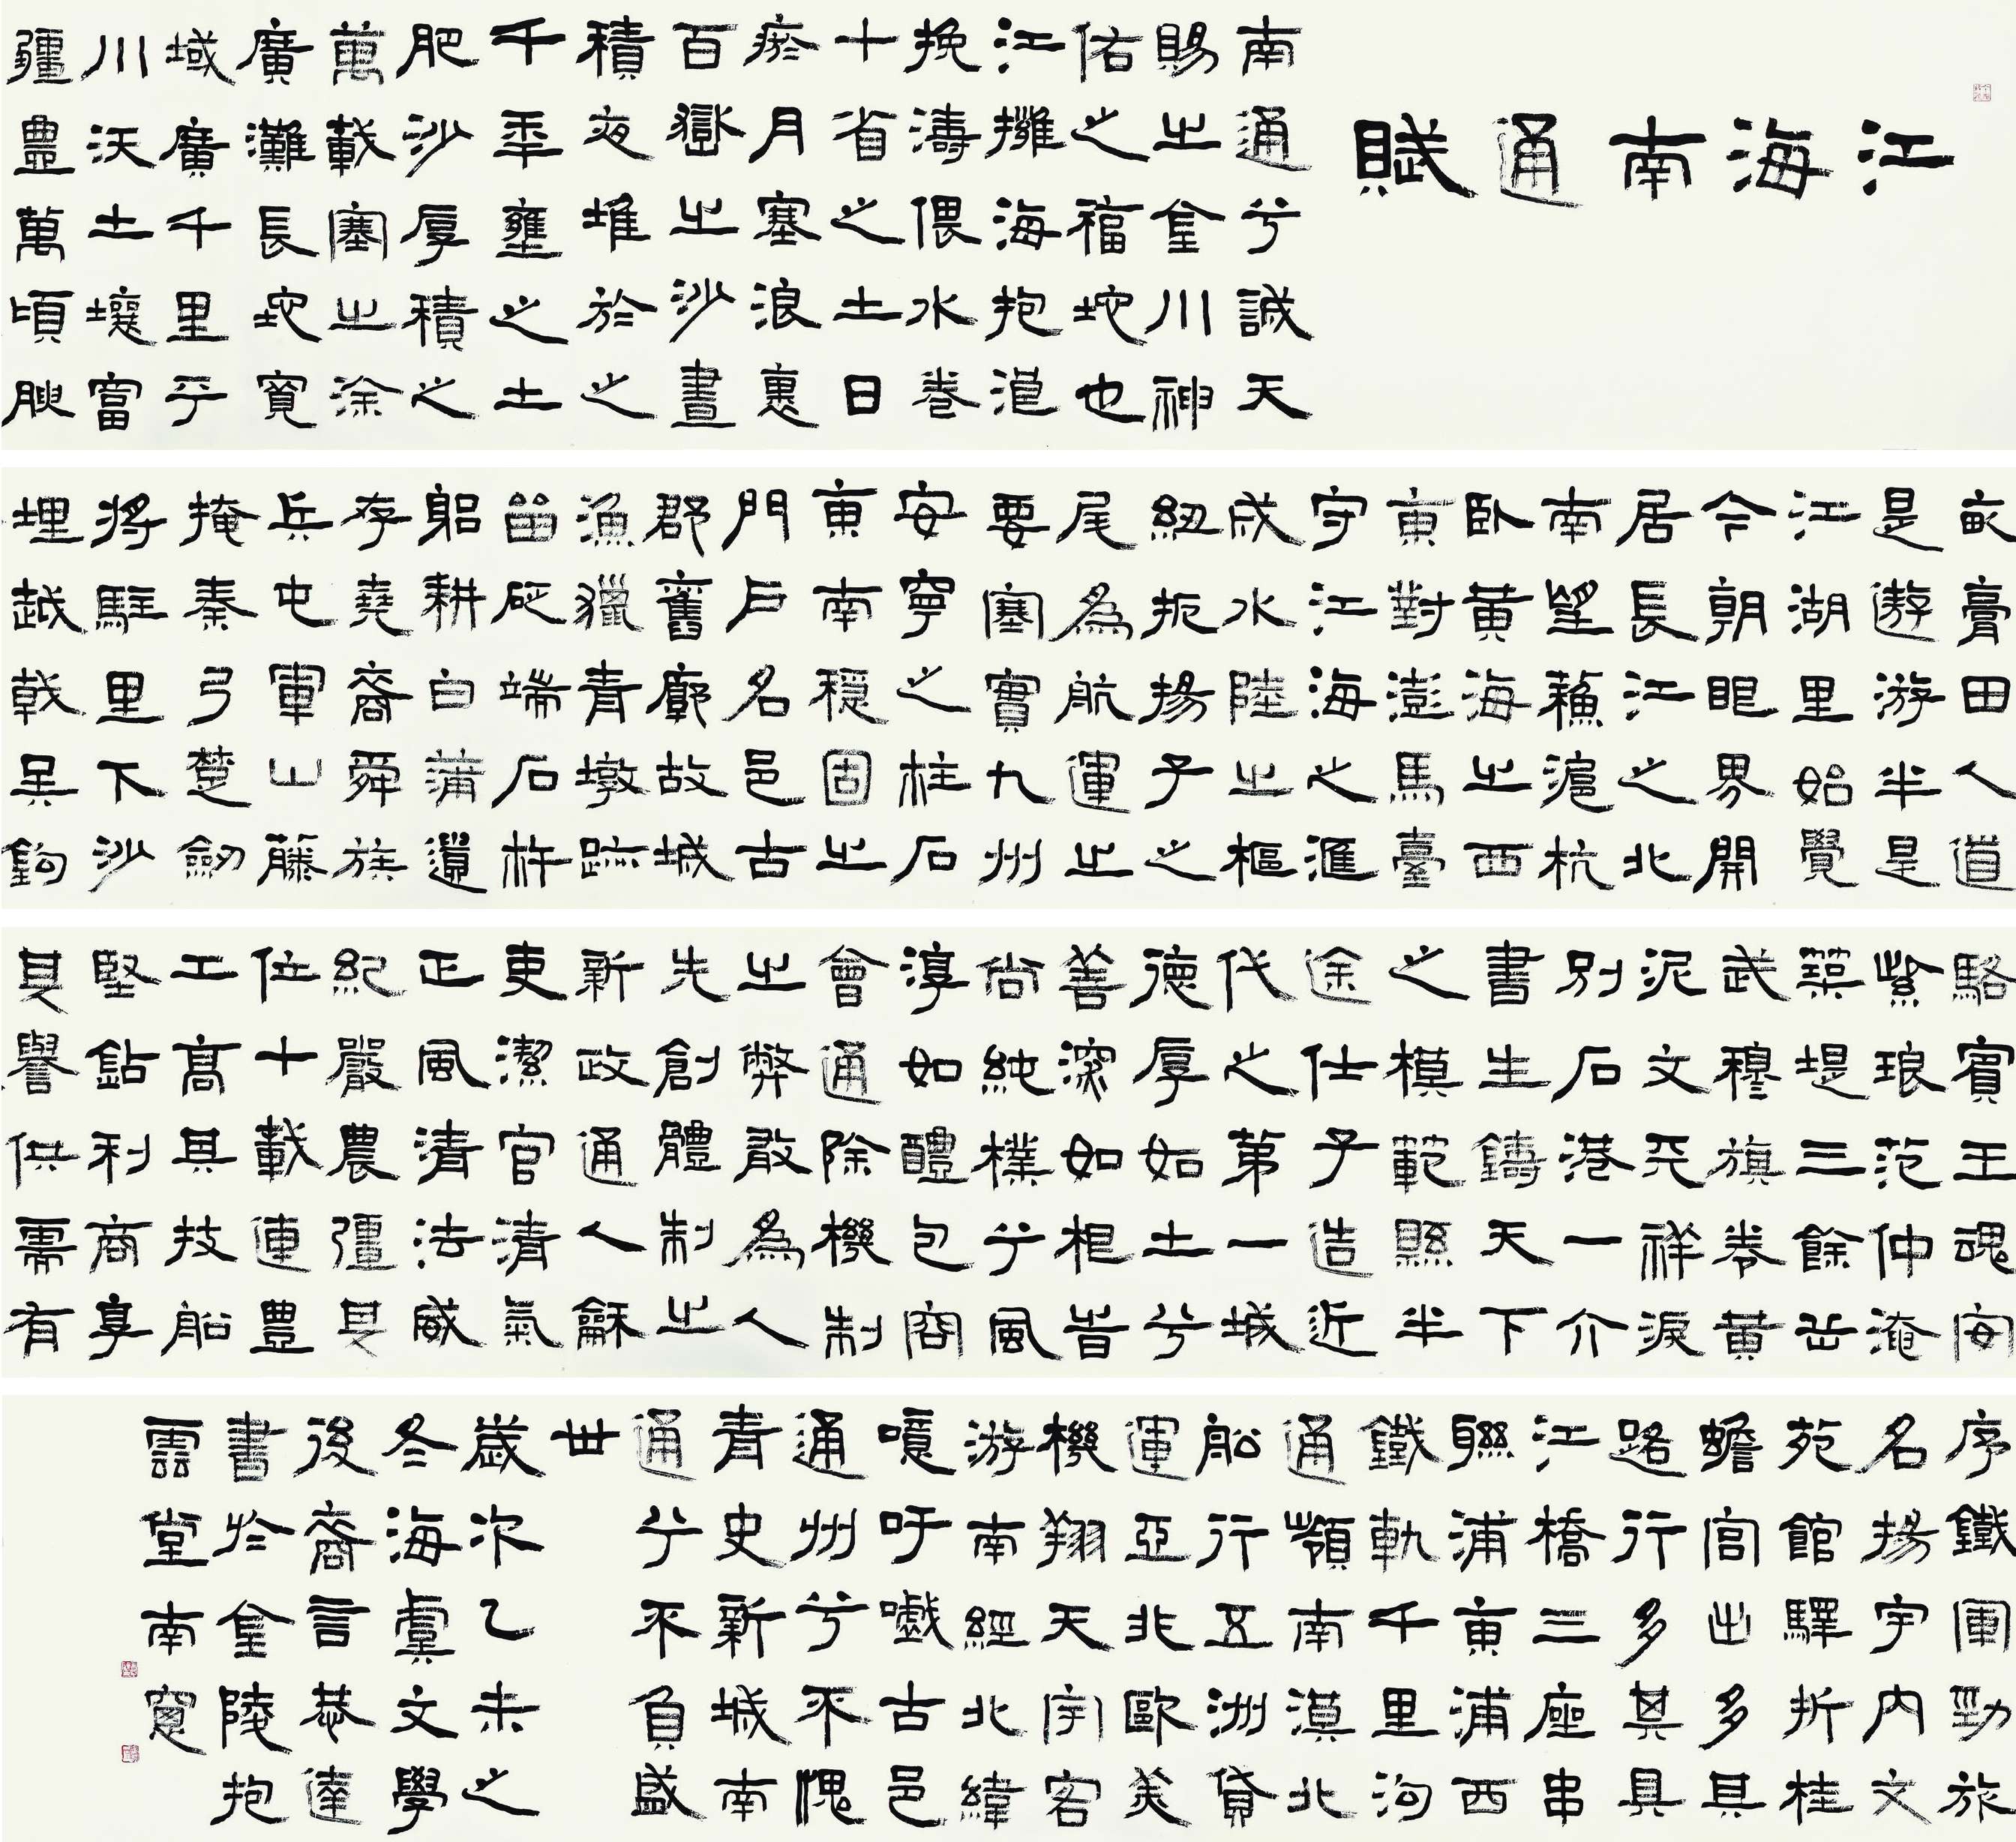 江海南通賦
南通兮誠天
賜之金川神
佑之福地也
江擁海抱滬
挽濤偎水卷
十省之土日
瘀月塞浪裹
百嶽之沙晝
積夜堆於之
千年壅之土
肥沙厚積之
萬載塞之涂
廣灘長地寬
域廣千里乎
川沃土壤富
疆豊萬頃腴
畝膏田人道
是遨游半是
江湖里始覺
今朝眼界開
居長江之北
南望蘇滬杭
卧黃海之西
東對澎馬臺
守江海之滙
成水陸之樞
紐扼揚子之
尾為航運之
要塞實九州
安寧之柱石
東南穩固之
門戶名邑古
郡舊廓故城
漁獵青墩跡
留砭端石杵
躬耕白蒲還
存堯裔舜族
兵屯軍山藤
掩秦弓楚劍
將駐里下沙
埋越戟吳鉤
駱賓王魂安
紫琅范仲淹
築堤三餘岳
武穆旗卷黃
泥文天祥淚
別石港一介
書生鑄天下
之模範縣半
途仕子造近
代之第一城
德厚如土兮
善深如相皆
尚純樸兮風
淳如醴包容
會通除機制
之弊敢為人
先創體制之
新政通人龢
吏潔官清氣
正風清法威
紀嚴農疆其
位十載連豊
工高其技船
堅鉆利商享
其譽供需有
序鐵軍勁旅
名揚宇內文
苑館驛折桂
蟾宮出多其
路行多其具
江橋三座串
聯浦東浦西
鐵軌千里溝
通嶺南漠北
船行五洲貨
運亞非歐美
機翔天宇客
游南經北緯
噫吁嚱古邑
通州兮不愧
青史新城南
通兮不負盛
世
歲次乙未之
冬海虞文學
後裔言恭達
書於金陵抱
雲堂南窗